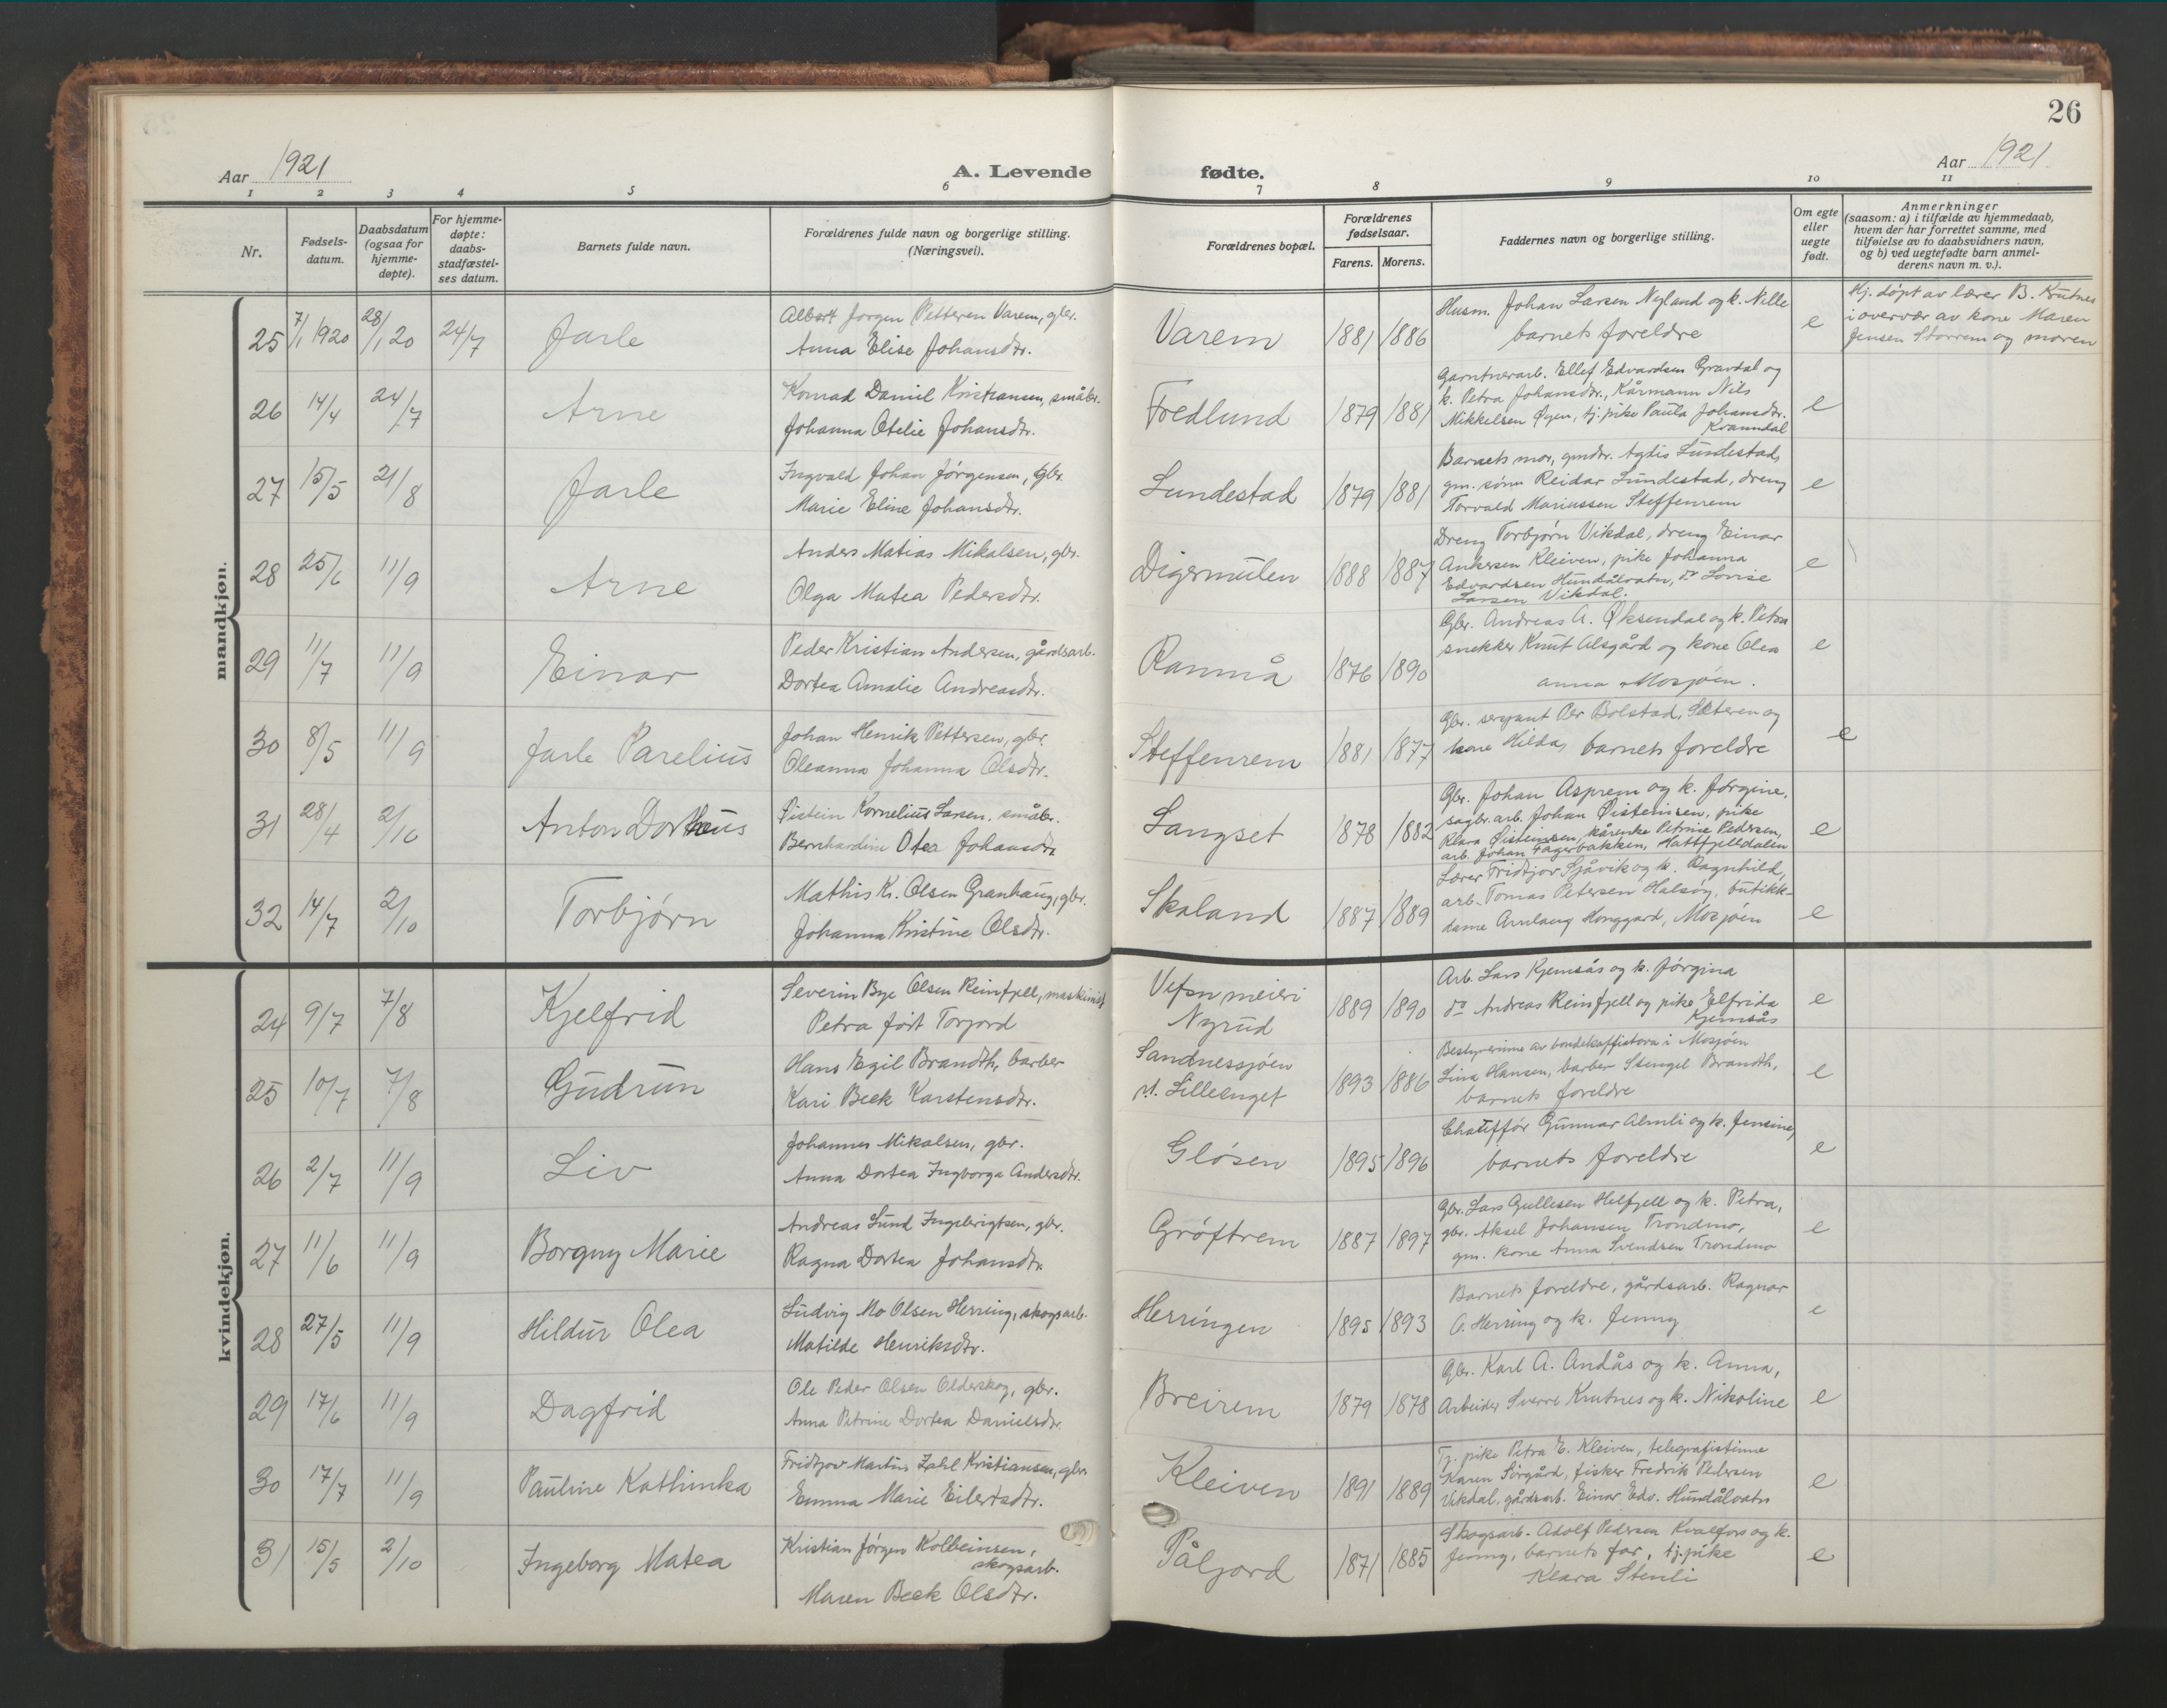 26
Aar 1921
A. Levende fødte.
Aar 1921
1 2 3 4 5 6 7 8 9 10 11
Nr.
Fødsels-
datum.
Daabsdatum
(ogsaa for
hjemme-
døpte).
For hjemme-
døpte:
daabs-
stadfæstel-
ses datum.
Barnets fulde navn.
Forældrenes fulde navn og borgerlige stilling.
(Næringsvei).
Forældrenes bopæl.
Forældrenes
fødselsaar.
Farens. Morens.
Faddernes navn og borgerlige stilling.
Om egte
eller
uegte
født.
Anmerkninger
(saasom: a) i tilfælde av hjemmedaab,
hvem der har forrettet samme, med
tilføielse av to daabsvidners navn,
og b) ved uegtefødte barn anmel-
derens navn m. v.).
mandkjøn.
25 7/1 1920 28/1 20 24/7 Jarle
Albert Jørgen Petterson Varem, gbr.
Anna Elise Johansdtr.
Varem 1881 1886
Husm. Johan Larsen Nyland og k. Nelle
barnets foreldre
e
Hj. døpt av lærer B. Krutnes
i overvær av kone Maren
Jensen Storrem og moren
26 14/4 24/7 Arne
Konrad Daniel Kristiansen, småbr.
Johanna Otelie Johansdtr.
Fredlund 1879 1881
Gartnerarb. Ellef Edvardsen Gravdal og
k. Petra Johansdtr., Kårmann Nils
Mikkelsen Øyen, tj. pike Paula Johansdtr.
Kvanndal
e
27 15/5 21/8 Jarle
Ingvald Johan Jørgensen, gbr.
Marie Eline Johansdtr.
Lundestad 1879 1881
Barnets mor, gmdtr. Agdis Lundestad,
gm. sønn Reidar Lundestad, dreng
Torvald Mariussen Steffenrem
e
28 25/6 11/9 Arne
Anders Matias Mikalsen, gbr.
Olga Matea Pedersdtr.
Digermulen 1888 1887
Dreng Torbjørn Vikdal, dreng Einar
Ankersen Kleiven, pike Johanna
Edvardsen Hundålvatn, do Lovise
Larsen Vikdal.
e
29 11/7 11/9 Einar
Peder Kristian Andersen, gårdsarb.
Dortea Amalie Andreasdtr.
Ranmå 1876 1890
Gbr. Andreas A. Øksendal og k. Petra
snekker Knut Alsgård og kone Olea
anna Mosjøen.
e
30 8/5 11/9 Jarle Parelius
Johan Henrik Pettersen, gbr.
Oleanna Johanna Olsdtr.
Steffenrem 1881 1877
Gbr. sersjant Per Bolstad, Sæteren og
kone Hilda, barnets foreldre
e
31 28/4 2/10 Anton Dortheus
Øistein Kornelius Larsen, småbr.
Bernhardine Otea Johansdtr.
Langset 1878 1882
Gbr. Johan Asprem og k. Jørgine,
sagbr.arb. Johan Øisteinsen, pike
Klara Øisteinsen, kårenke Petrine Pedersen,
arb. Johan Fagerbakken, Hattfjelldalen
e
32 14/7 2/10 Torbjørn
Mathis Kr. Olsen Granhaug, gbr.
Johanna Kristine Olsdtr.
Skaland 1887 1889
Lærer Fridtjov Sjåvik og k. Ragnhild,
arb. Tomas Petersen Halsøy, butikk-
dame Arnlaug Honggard, Mosjøen
e
kvindekjøn.
24 9/7 7/8 Kjelfrid
Severin Bye Olsen Reinfjell, maskinist
Petra født Torjord
Vefsn meieri
Nyrud
1889 1890
Arb. Lars Kjemsås og k. Jørgina
do Andreas Reinfjell og pike Elfrida
Kjemsås
e
25 10/7 7/8 Gudrun
Hans Egil Brandth, barber
Kari Beck Karstensdtr.
Sandnessjøen
pt. Lilleenget
1893 1886
Bestyrerinne av bondekaffistova i Mosjøen
Lina Hansen, barber Stengel Brandth,
barnets foreldre
e
26 2/7 11/9 Liv
Johannes Mikalsen, gbr.
Anna Dortea Ingborga Andersdtr.
Gløsen 1895 1896
Chauffør Gunnar Almli og k. Jensine,
barnets foreldre
e
27 11/6 11/9 Borgny Marie
Andreas Lund Ingebrigtsen, gbr.
Ragna Dortea Johansdtr.
Grøftrem 1887 1897
Gbr. Lars Gullesen Helfjell og k. Petra,
gbr. Aksel Johansen Trondmo,
gm. kone Anna Svendsen Trondmo
e
28 27/5 11/9 Hildur Olea
Ludvig Mo Olsen Herring, skogsarb.
Matilde Henriksdtr.
Herringen 1895 1893
Barnets foreldre, gårdsarb. Ragnar
O. Herring og k. Jenny
e
29 17/6 11/9 Dagfrid
Ole Peder Olsen Olderskog, gbr.
Anna Petrine Dortea Danielsdtr.
Breirem 1879 1878
Gbr. Karl A. Andås og k. Anna,
Arbeider Sverre Krutnes og k. Nikoline
e
30 17/7 11/9 Pauline Kathinka
Fridtjov Martin Zahl Kristiansen, gbr.
Emma Marie Eilertsdtr.
Kleiven 1891 1889
Tj. pike Petra E. Kleiven, telegrafistinne
Karen Sørgård, fisker Fredrik Pedersen
Vikdal, gårdsarb. Einar Edv. Hundålvatn
e
31 15/5 2/10 Ingeborg Matea
Kristian Jørgen Kolbeinsen,
skogsarb.
Maren Beck Olsdtr.
Påljord 1871 1885
Skogsarb. Adolf Pedersen Kvalfors og k.
Jenny, barnets far, tj. pike
Klara Stenli
e